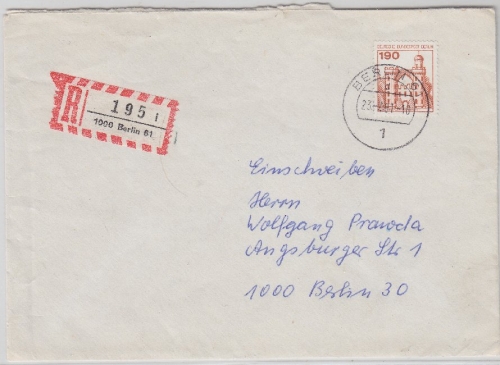 DEUTSCHE BUNDESPOST BERLIN
190
BERLIN
1
R
195 I
1000 Berlin 61
Einschreiben
Herrn
Wolfgang Prawoda
Augsburger Str 1
1000 Berlin 30